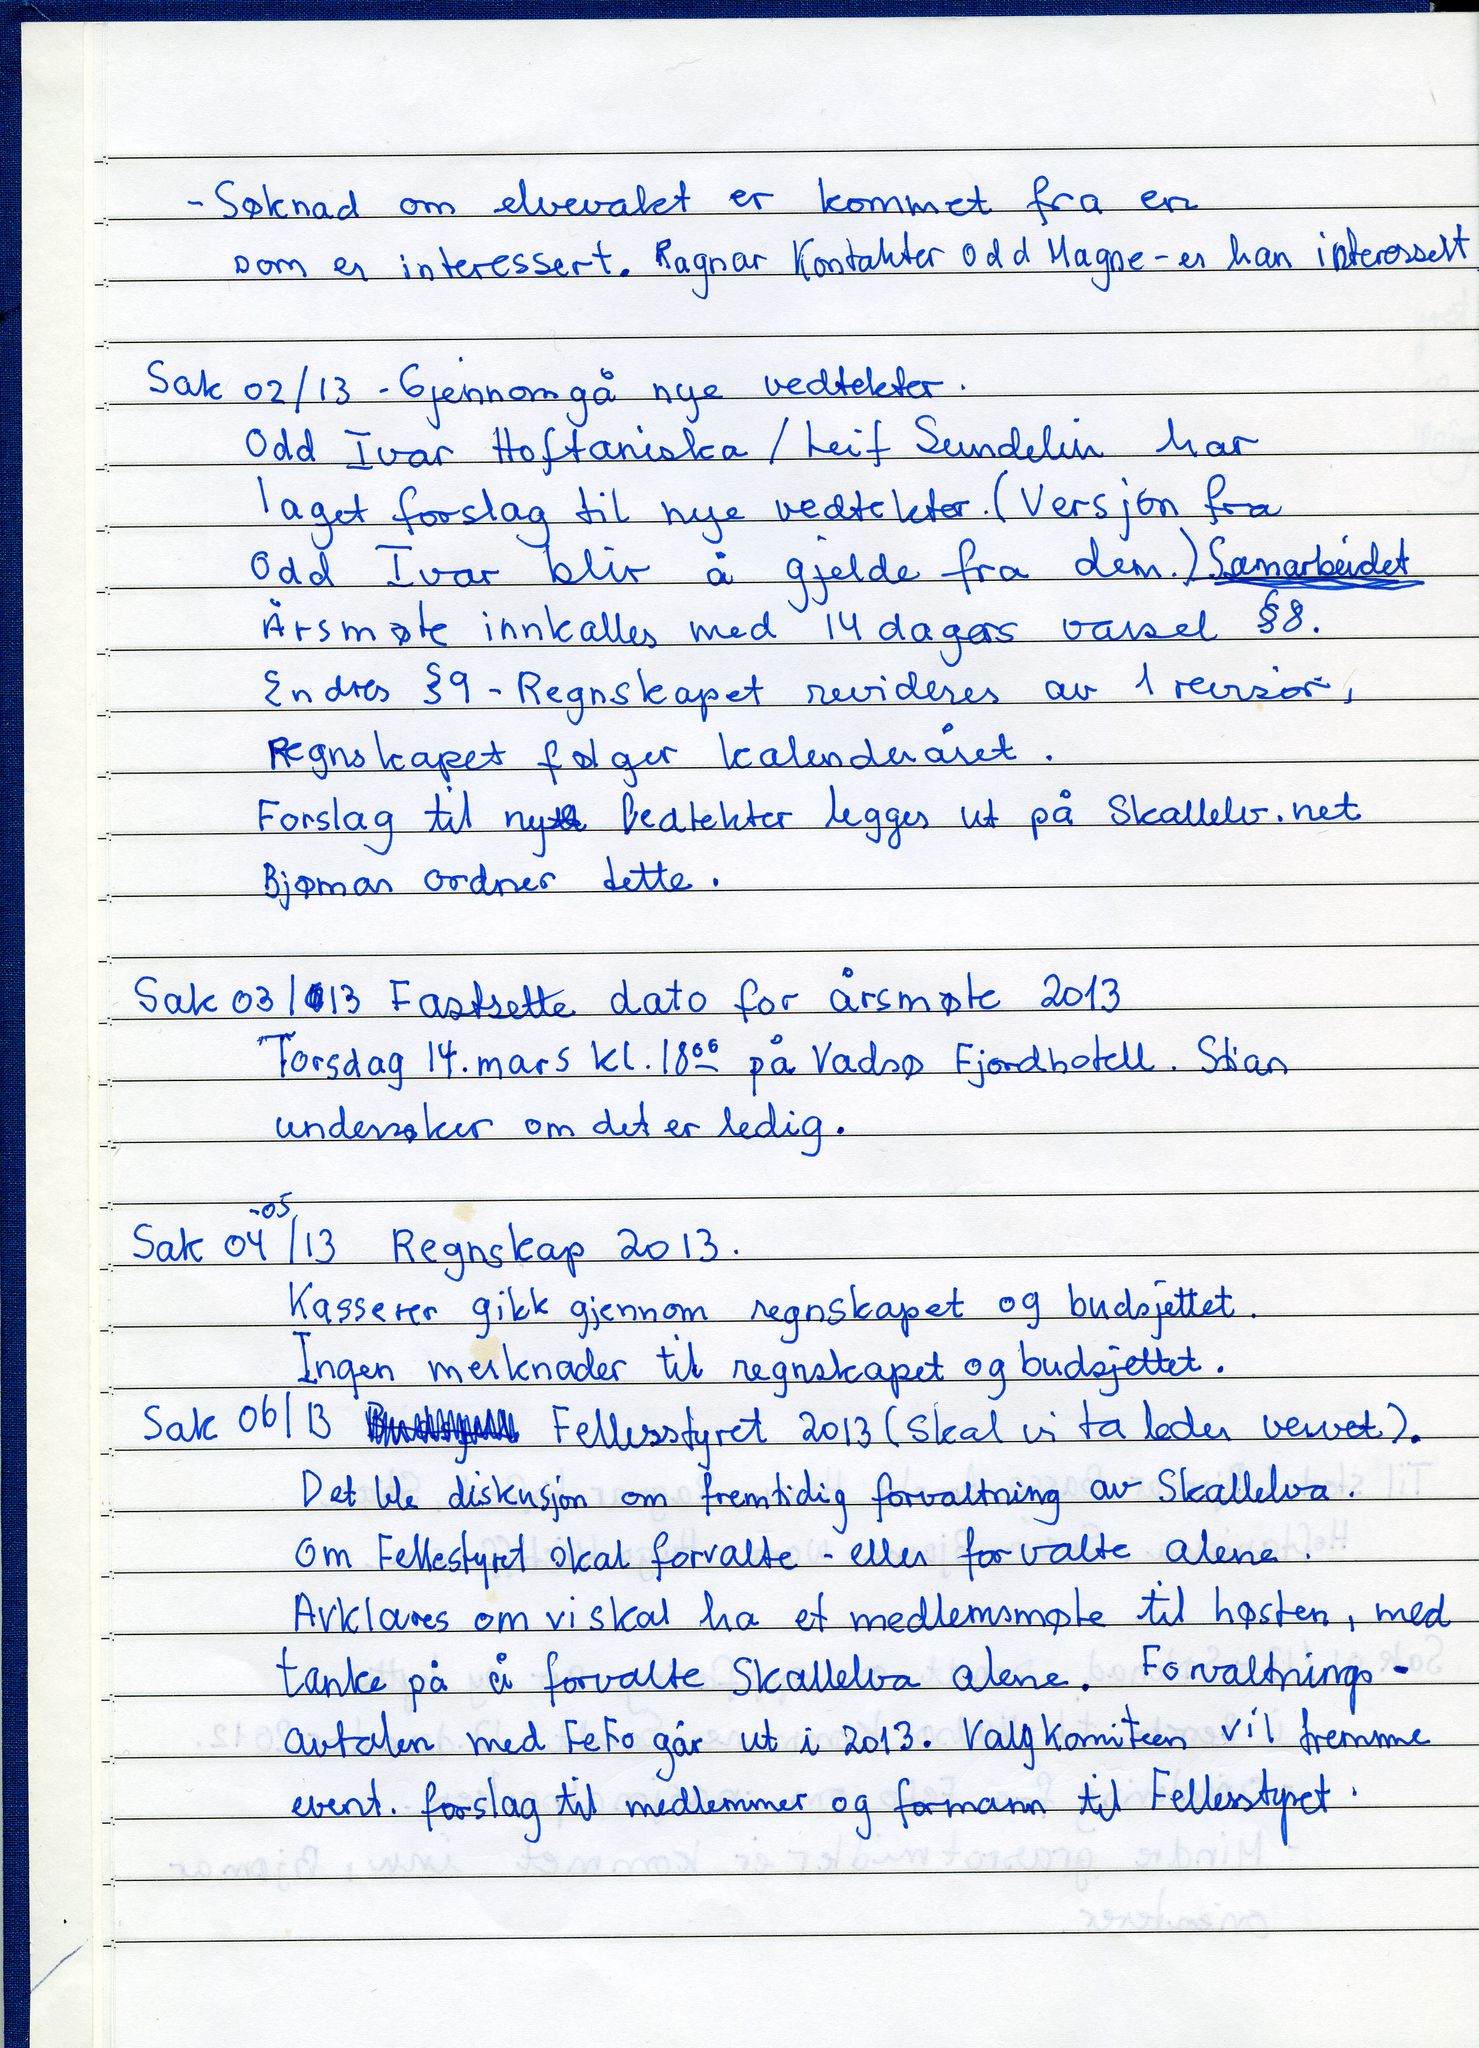 - Søknad om elvevakt er kommet fra en
som er interessert. Ragnar Kontakter Odd Magne - er han interessert
Sak 02/13 - Gjennomgå nye vedtekter.
Odd Ivar Hoftaniska / Leif Sundelin har
laget forslag til nye vedtekter. (Versjon fra
Odd Ivar blir å gjelde fra dem.) Samarbeidet
Årsmøte innkalles med 14 dagers varsel §8.
Endres §9 - Regnskapet revideres av 1 revisor,
Regnskapet følger kalenderåret.
Forslag til nye Vedtekter legges ut på Skallelv.net
Bjørnar ordner dette.
Sak 03/13 Fastsette dato for årsmøte 2013
Torsdag 14. mars kl. 18⁰⁰ på Vadsø Fjordhotell. Stian
undersøker om det er ledig.
Sak 04-05/13 Regnskap 2013.
Kasserer gikk gjennom regnskapet og budsjettet.
Ingen merknader til regnskapet og budsjettet.
Sak 06/13 Fellesstyret 2013 (Skal vi ta leder vervet).
Det ble diskusjon om fremtidig forvaltning av Skallelva.
Om Fellestyret skal forvalte - eller forvalte alene.
Avklares om vi skal ha et medlemsmøte til høsten, med
tanke på å forvalte Skallelva alene. Forvaltnings-
avtalen med FeFo går ut i 2013. Valgkomiteen vil fremme
event. forslag til medlemmer og formann til Fellesstyret.